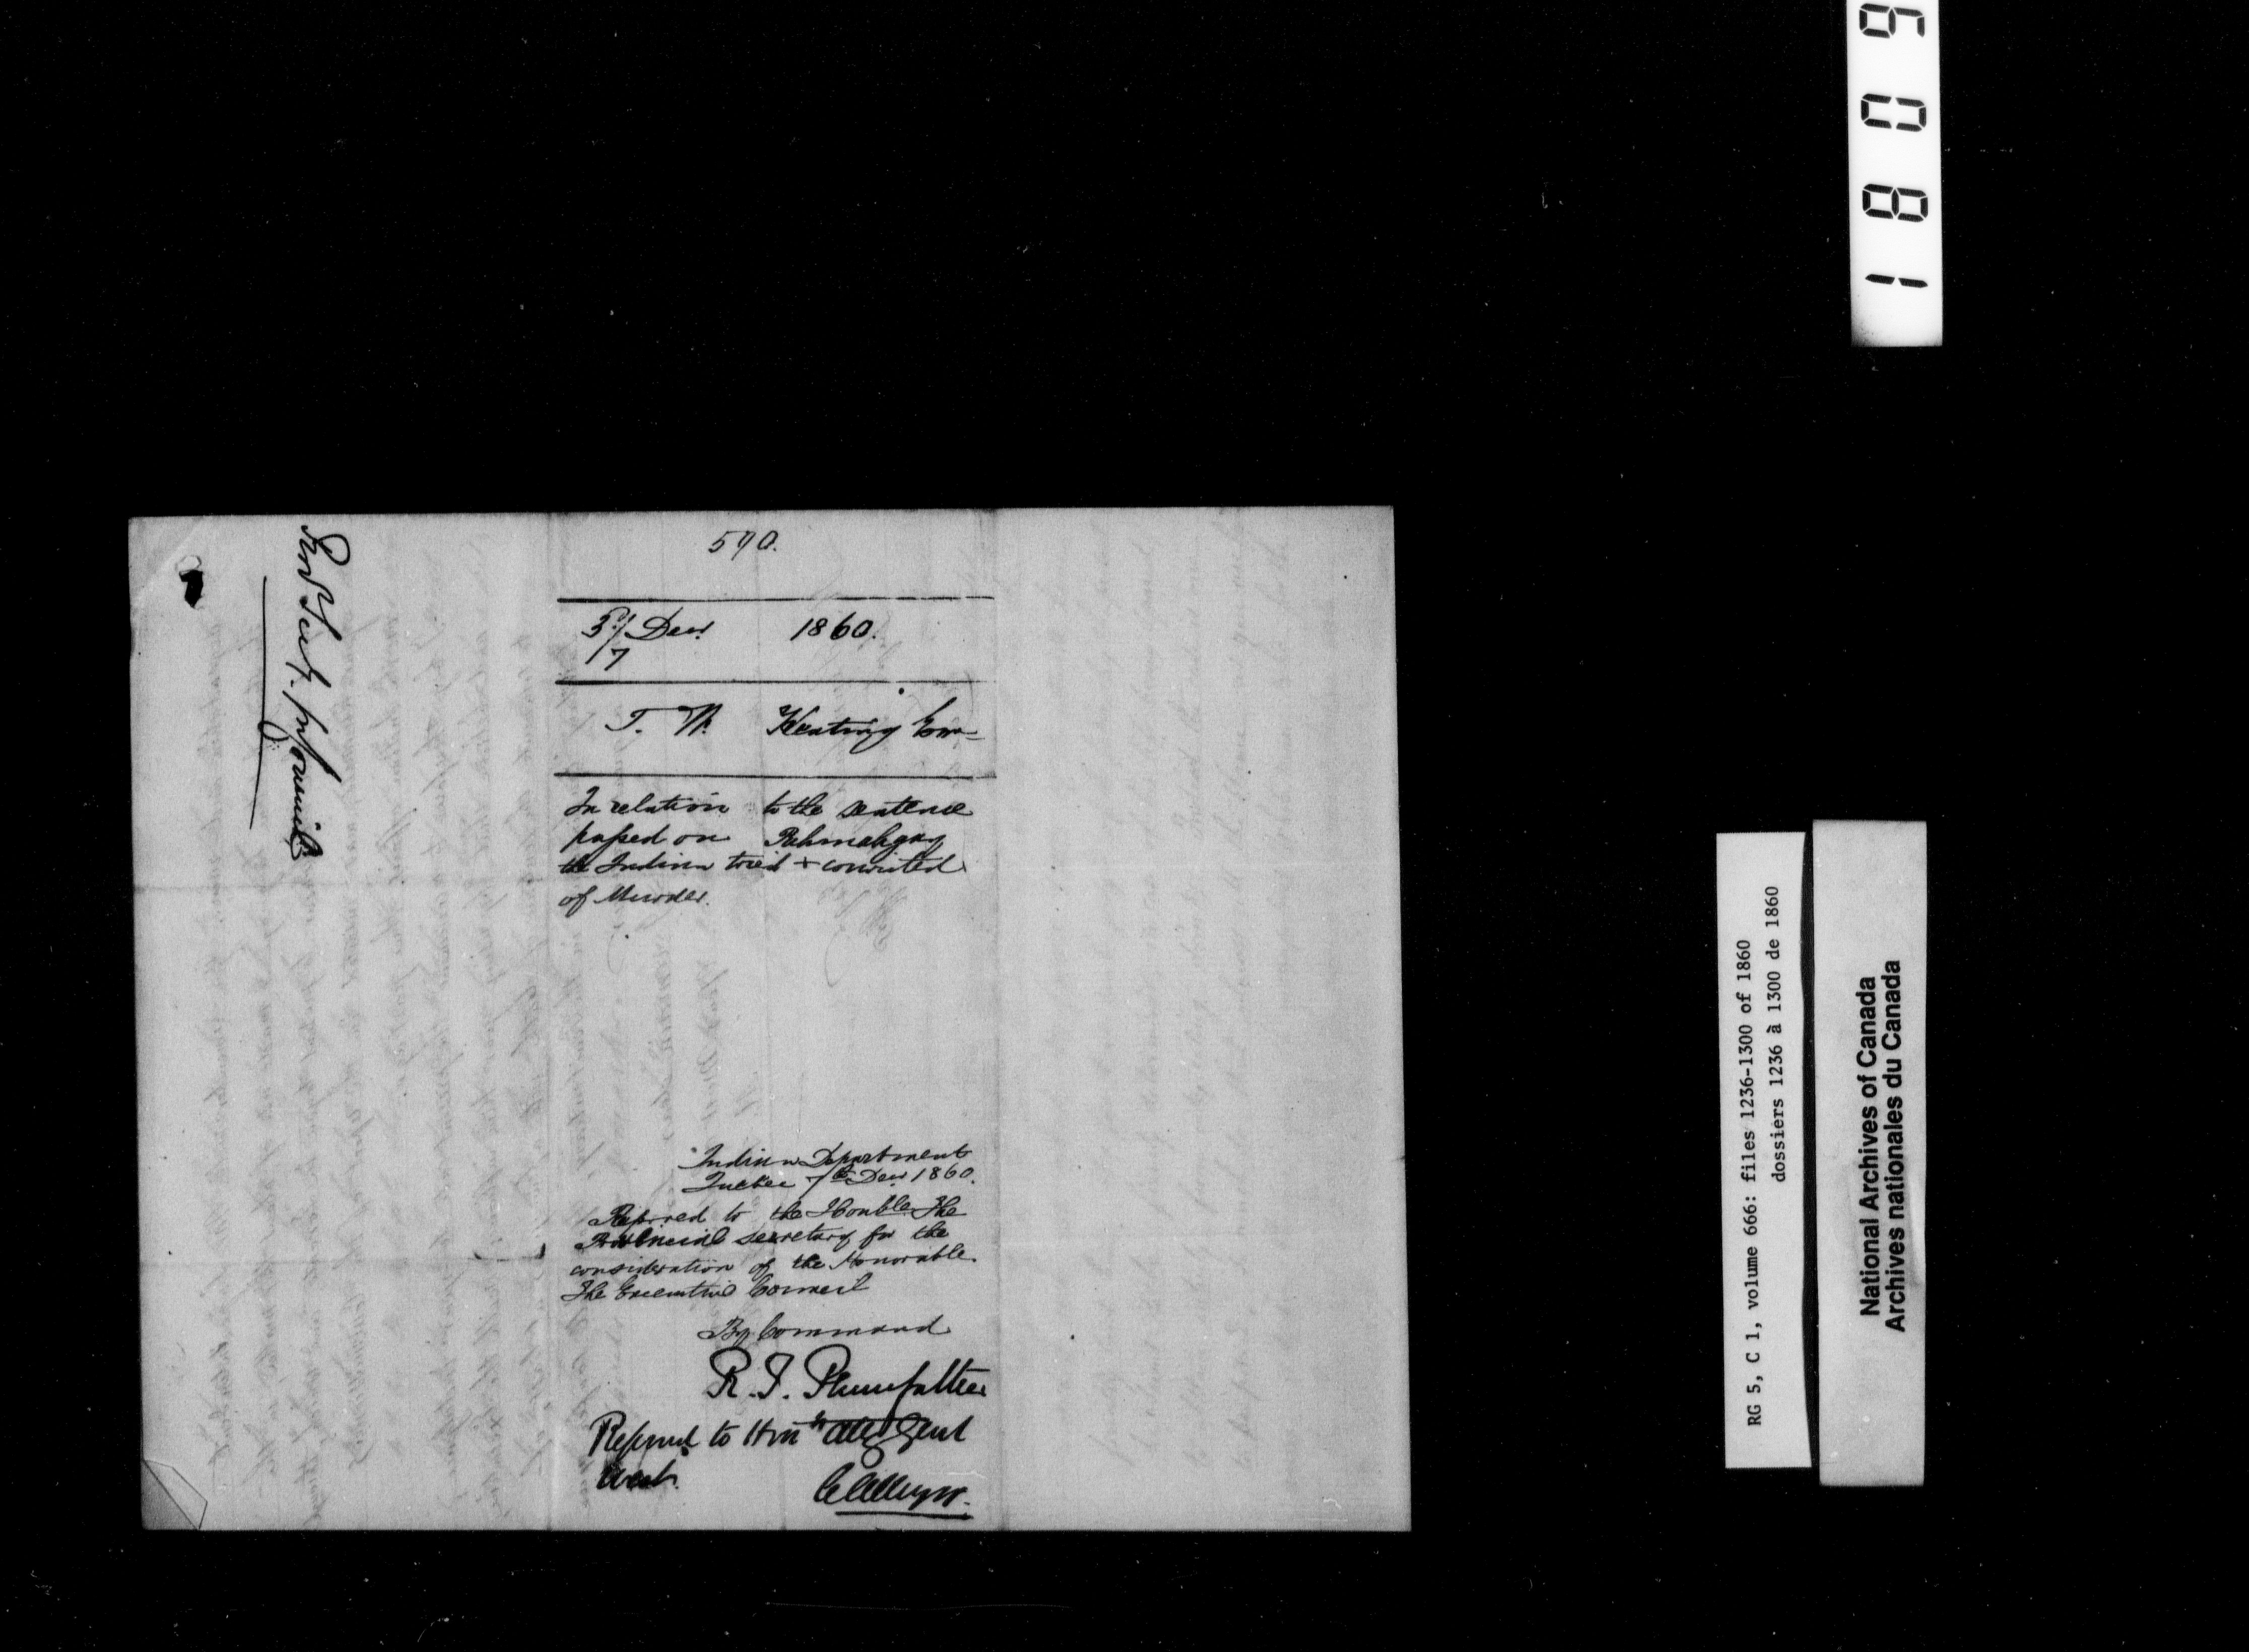 1809
590.
3d/7 Decr 1860.
T. W. Keating
In relation to the sentence
passed on Pahmahgay
the Indian tried & convicted
of Murder.
Indian Department
Quebec 7th Decr 1860.
Referred to the Honble. The
Provincial secretary for the
consideration of the Honorable
The Executive Council
By Command
R. T. Pennefather
Referred to Honble Atty Genl
West.
C Alleyn
Prov Secy.
RG 5, C 1, volume 666: files 1236-1300 of 1860
dossiers 1236 à 1300 de 1860
National Archives of Canada
Archives nationales du Canada